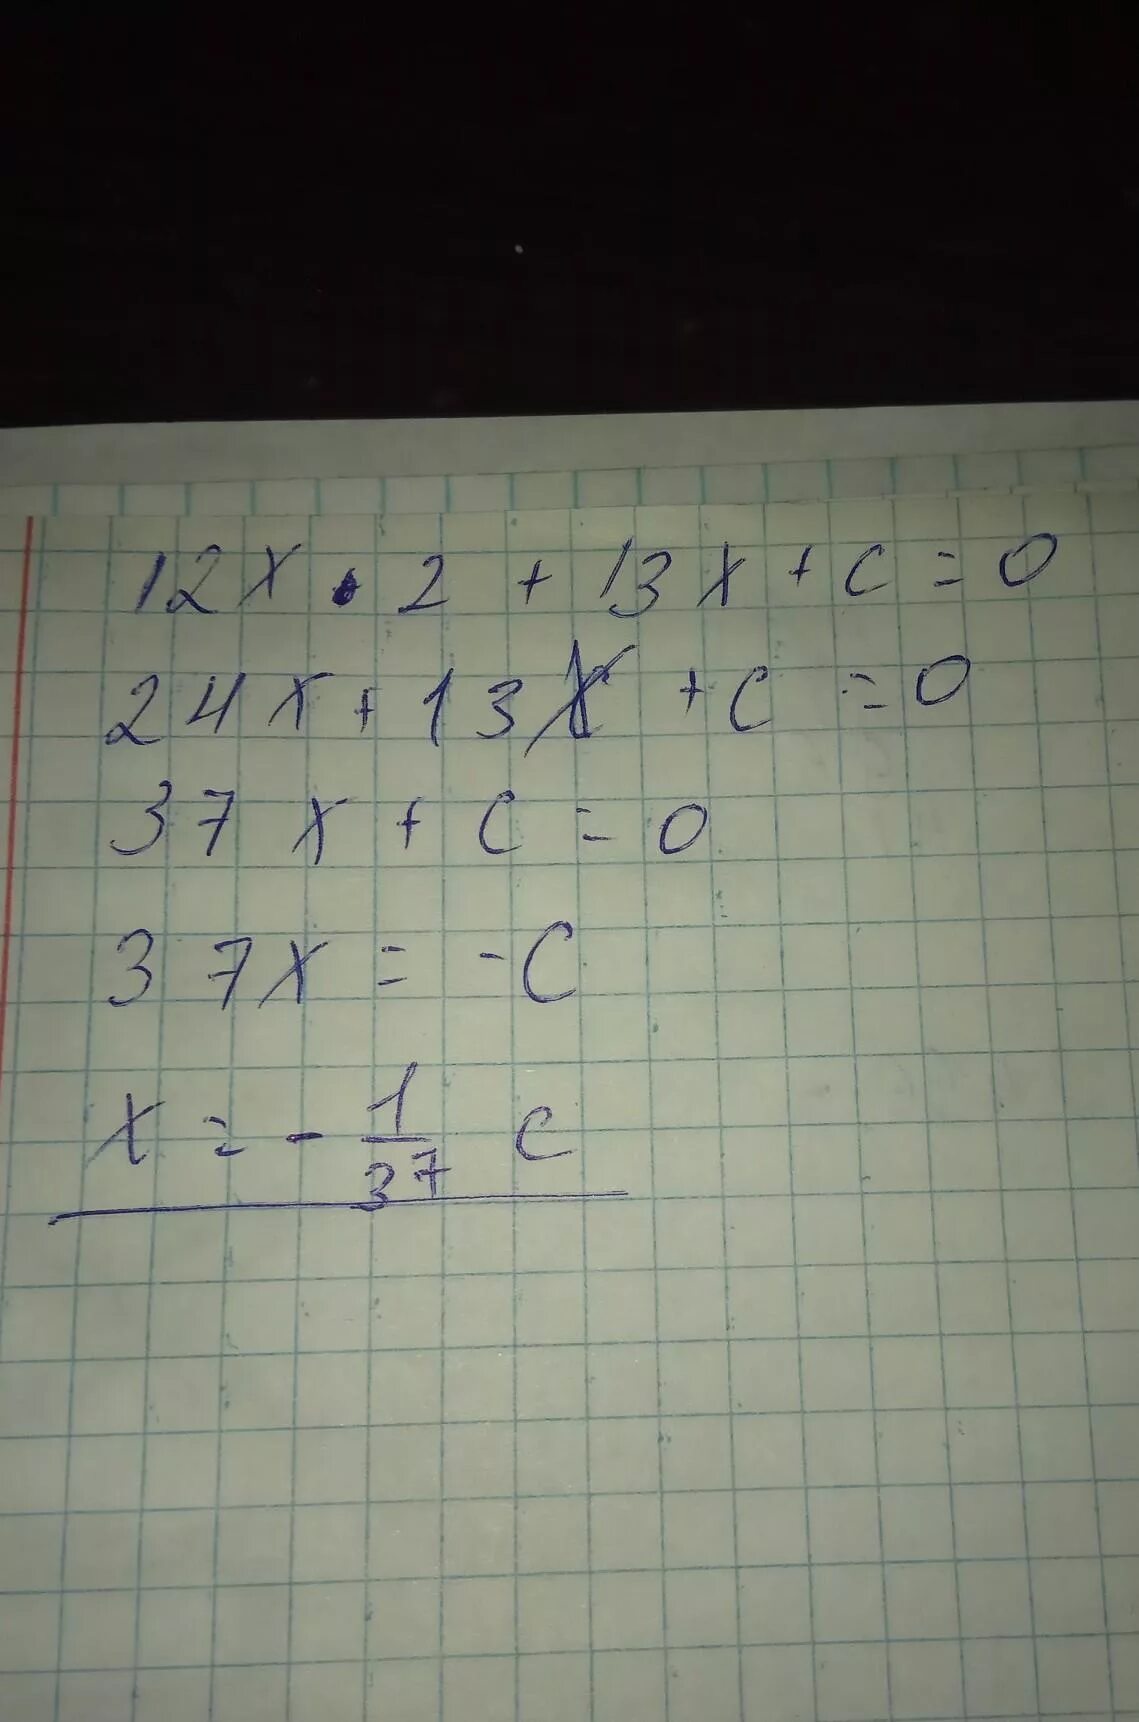 12x · 2 + 13x + c = 0
24x + 13x + c = 0
37x + c = 0
37x = -c
x = - 1/37 c